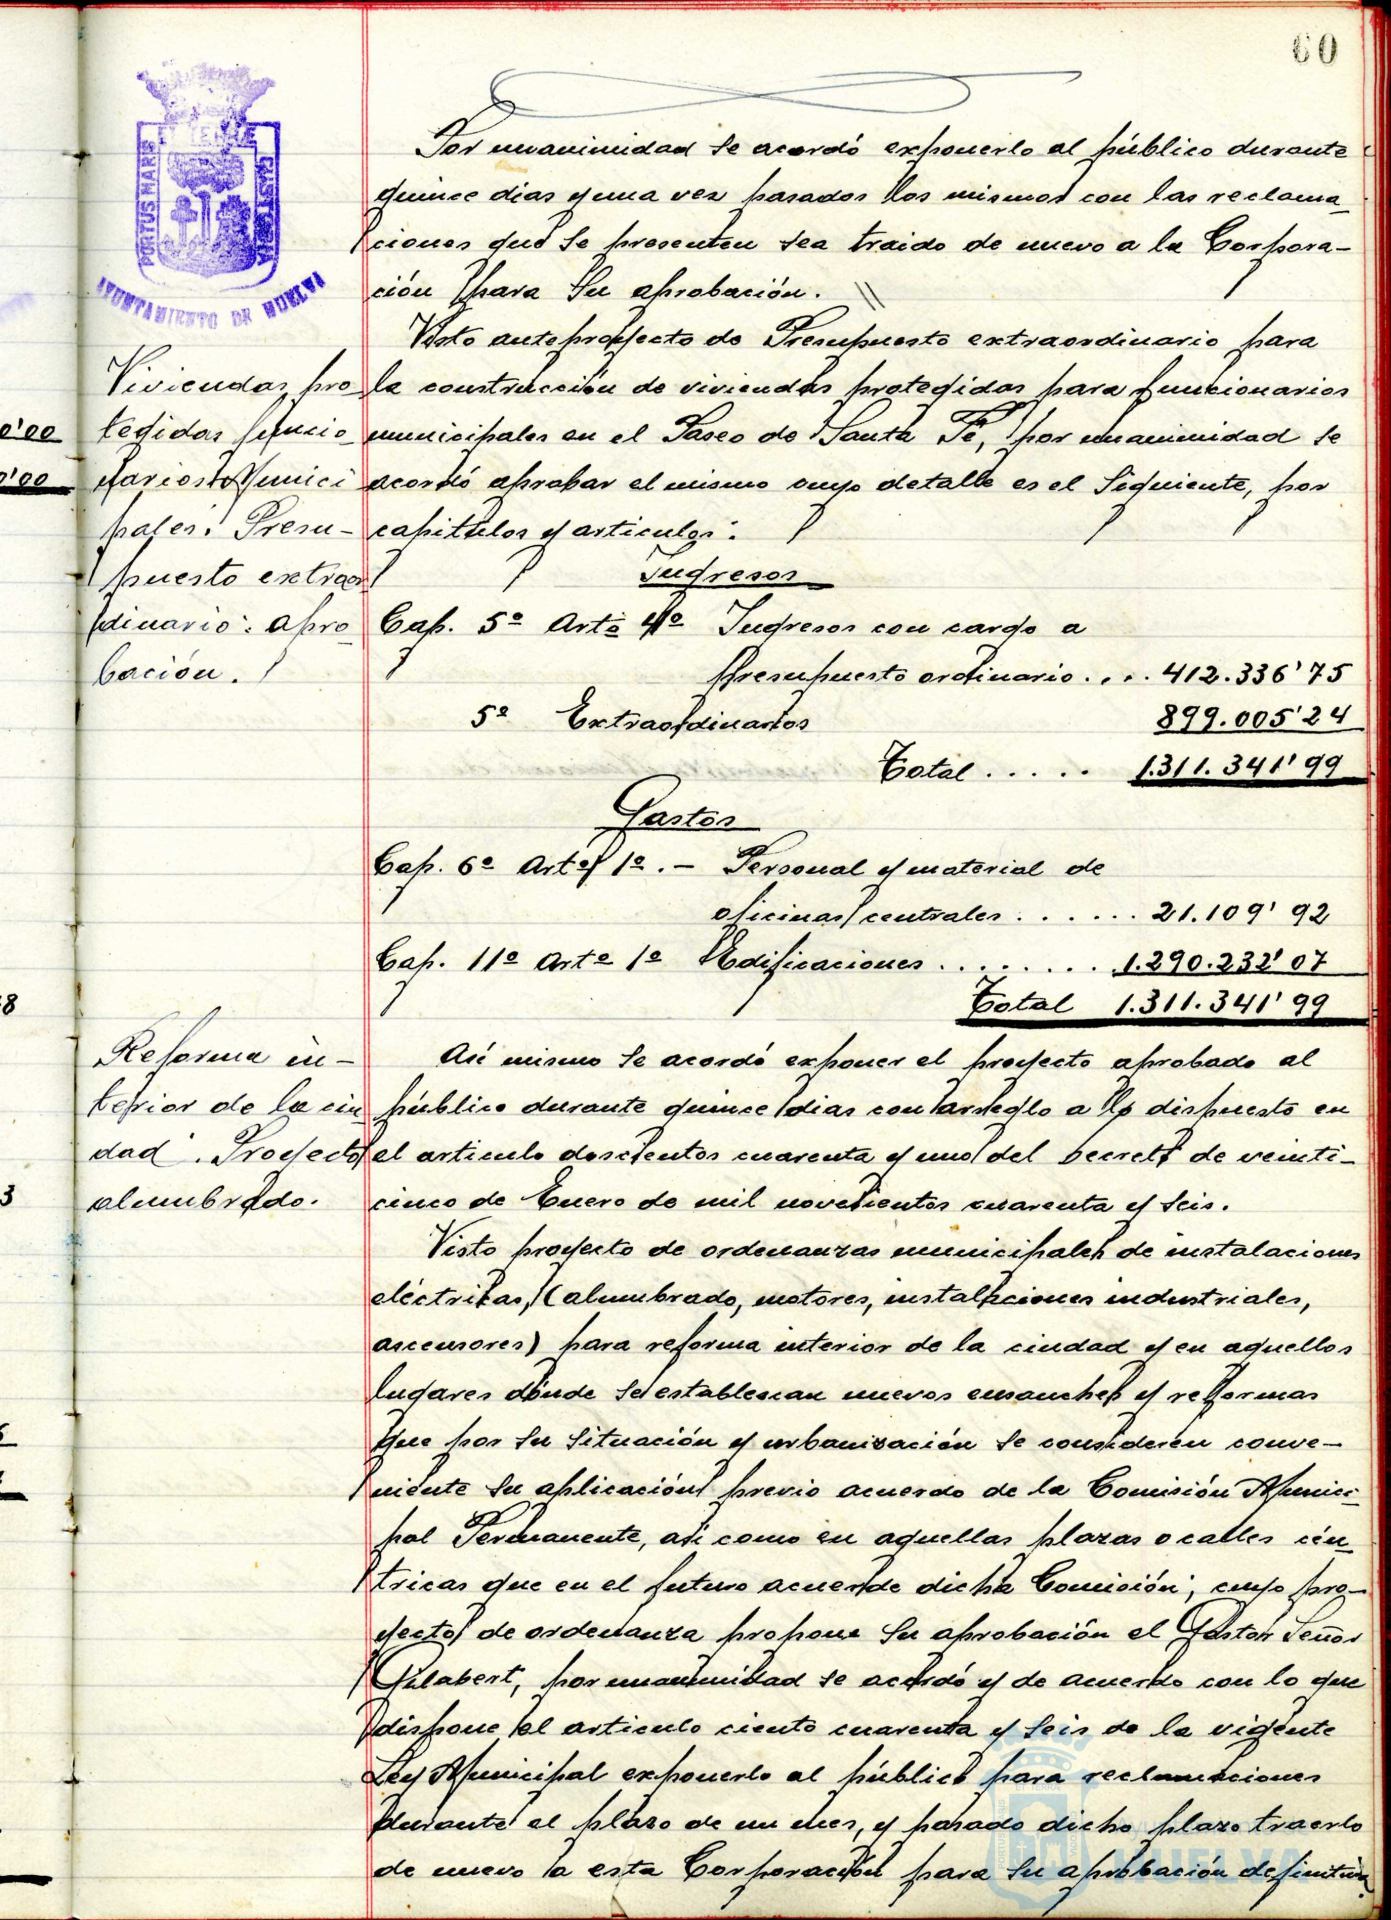 60
PORTUS MARIS
ET TERRAE
CUSTODIA
AYUNTAMIENTO DE HUELVA
Por unanimidad se acordó exponerlo al público durante
quince dias y una vez pasados los mismos con las reclama-
ciones que se presenten sea traido de nuevo a la Corpora-
ción para su aprobación.
Viviendas pro-
tegidas funcio-
narios Munici
pales: Presu-
puesto extraor
dinario: apro-
bación.
Visto anteproyecto de Presupuesto extraordinario para
la construcción de viviendas protegidas para funcionarios
municipales en el Paseo de Santa Fé, por unanimidad se
acordó aprobar el mismo cuyo detalle es el siguiente, por
capitulos y articulos:
Ingresos
Cap. 5º Artº 4º Ingresos con cargo a
presupuesto ordinario.... 412.336'75
5º Extraordinarios 899.005'24
Total ..... 1.311.341'99
Gastos
Cap. 6º Artº 1º.- Personal y material de
oficinas centrales ...... 21.109'92
Cap. 11º Artº 1º Edificaciones ........ 1.290.232'07
Total 1.311.341'99
Reforma in-
terior de la ciu
dad. Proyecto
alumbrado.
Asi mismo se acordó exponer el proyecto aprobado al
público durante quince dias con arreglo a lo dispuesto en
el articulo doscientos cuarenta y uno del Decreto de veinti-
cinco de Enero de mil novecientos cuarenta y seis.
Visto proyecto de ordenanzas municipales de instalaciones
eléctricas, (alumbrado, motores, instalaciones industriales,
ascensores) para reforma interior de la ciudad y en aquellos
lugares dónde se establezcan nuevos ensanches y reformas
que por su situación y urbanización se consideren conve-
niente su aplicación previo acuerdo de la Comisión Munici-
pal Permanente, asi como en aquellas plazas o calles cén-
tricas que en el futuro acuerde dicha Comisión; cuyo pro-
yecto de ordenanza propone su aprobación el Gestor Señor
Gilabert, por unanimidad se acordó y de acuerdo con lo que
dispone el articulo ciento cuarenta y seis de la vigente
Ley Municipal exponerlo al público para reclamaciones
durante el plazo de un mes, y pasado dicho plazo traerlo
de nuevo a esta Corporación para su aprobación definitiva.
HUELVA
0'00
0'00
8
3